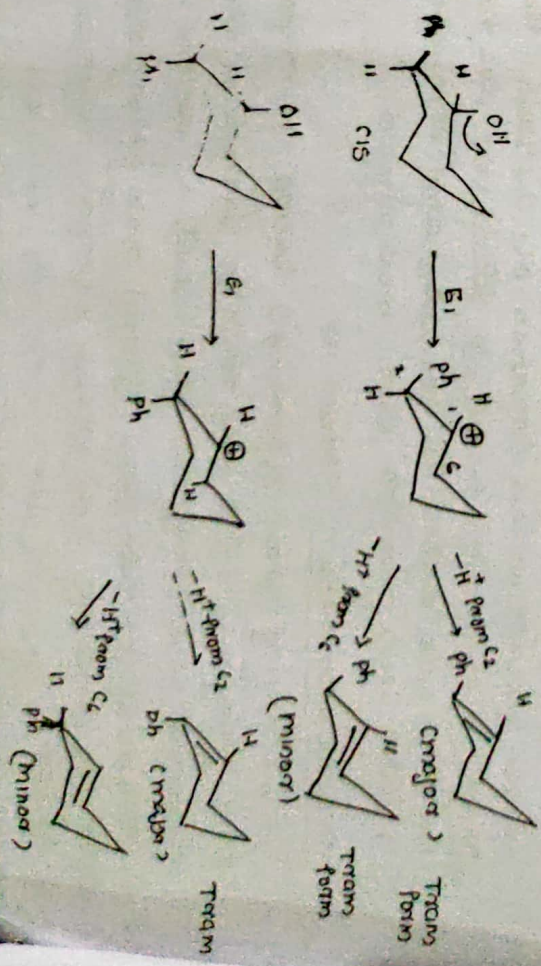 OH
Ph H
H
CIS
E1
Ph H
1 ⊕
2
H 6
-H+ from C2
Ph H
(major) Tram
form
-H+ from C6
Ph H
(minor) Tram
form
OH
H H
Ph
E1
H H
⊕
Ph H
-H+ from C2
H
Ph (major) Tram
-H+ from C6
H
Ph
(minor)